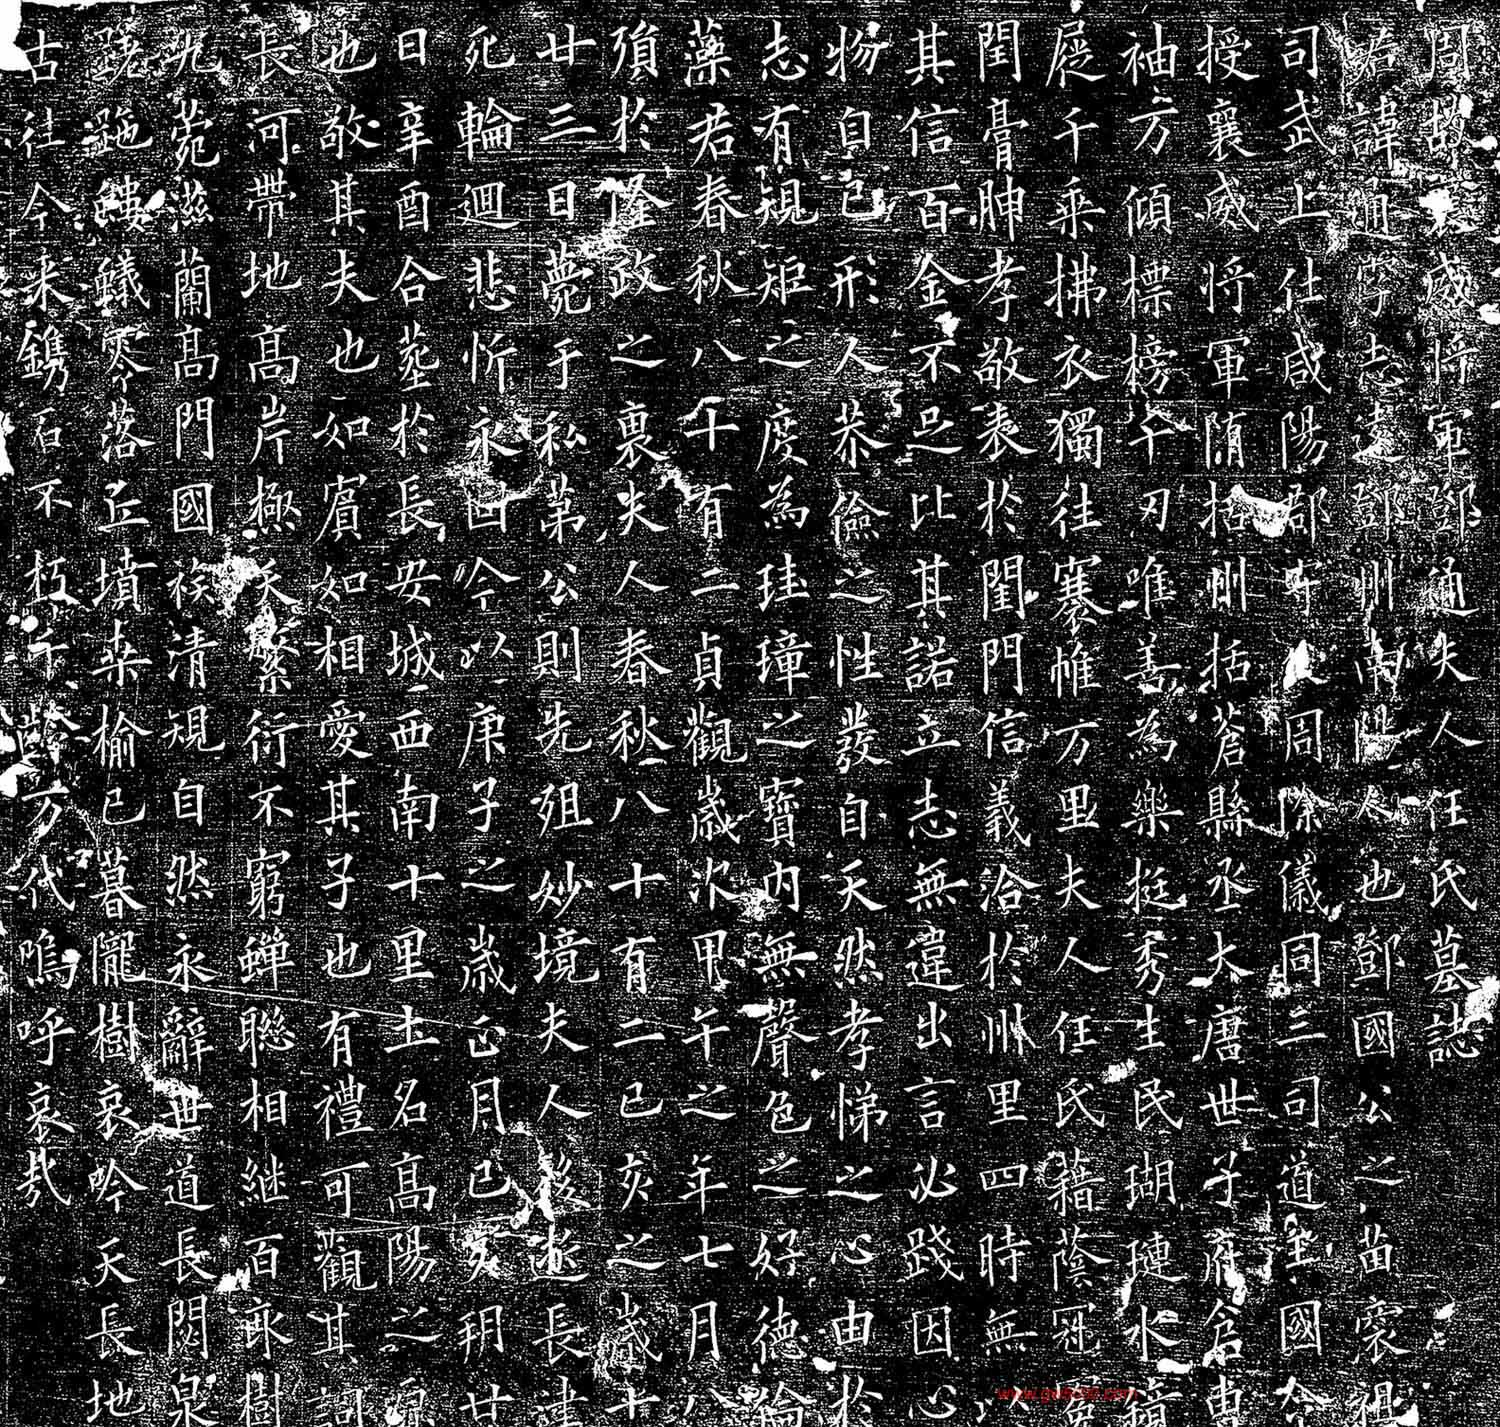 周故襄威將軍鄧通夫人任氏墓誌
君諱通字志遠鄧州南陽人也鄧國公之苗裔祖
司武上仕咸陽郡守周除儀同三司道望國令
授襄威將軍隋括州括蒼縣丞大唐世子府倉曹
袖方傾標榜千刃唯善為樂挺秀生民瑚璉水鏡
屣千乘拂衣獨往褰帷万里夫人任氏藉蔭冠
閏膏腴孝敬表於閨門信義洽於州里四時無以
其信百金不足比其諾立志無違出言必踐因心
物自已形人恭儉之性發自天然孝悌之心由於
志有規矩之度為珪璋之寶內無聲色之好德
藻君春秋八十有二貞觀歲次甲午之年七月八
殞於隆政之裏夫人春秋八十有二已亥之歲十
廿三日薨于私第公則先殂妙境夫人後逝長
死輪迴悲忻永囚今以庚子之歲正月已亥朔廿
日辛酉合葬於長安城西南十里土名高陽之原
也敬其夫也如賓如相愛其子也有禮可觀其詞
長河帶地高岸極天繁衍不窮蟬聯相繼百畝樹
九菀滋蘭高門國族清規自然永辭世道長閟泉
蹉跎鏤蟻零落丘墳桑榆已暮隴樹哀吟天長地
古往今來鐫石不朽千齡万代嗚呼哀哉
www.